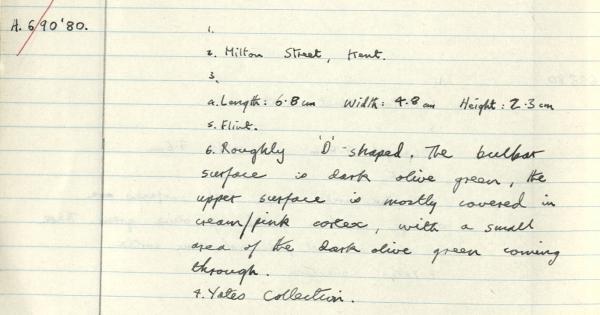 A. 690'80.
1.
2. Milton Street, Kent.
3.
a. Length: 6.8 cm Width: 4.8 cm Height: 2.3 cm
5. Flint.
6. Roughly 'D' shaped. The bulbar
surface is dark olive green, the
upper surface is mostly covered in
cream/pink cortex, with a small
area of the dark olive green coming
through.
4. Yates Collection.